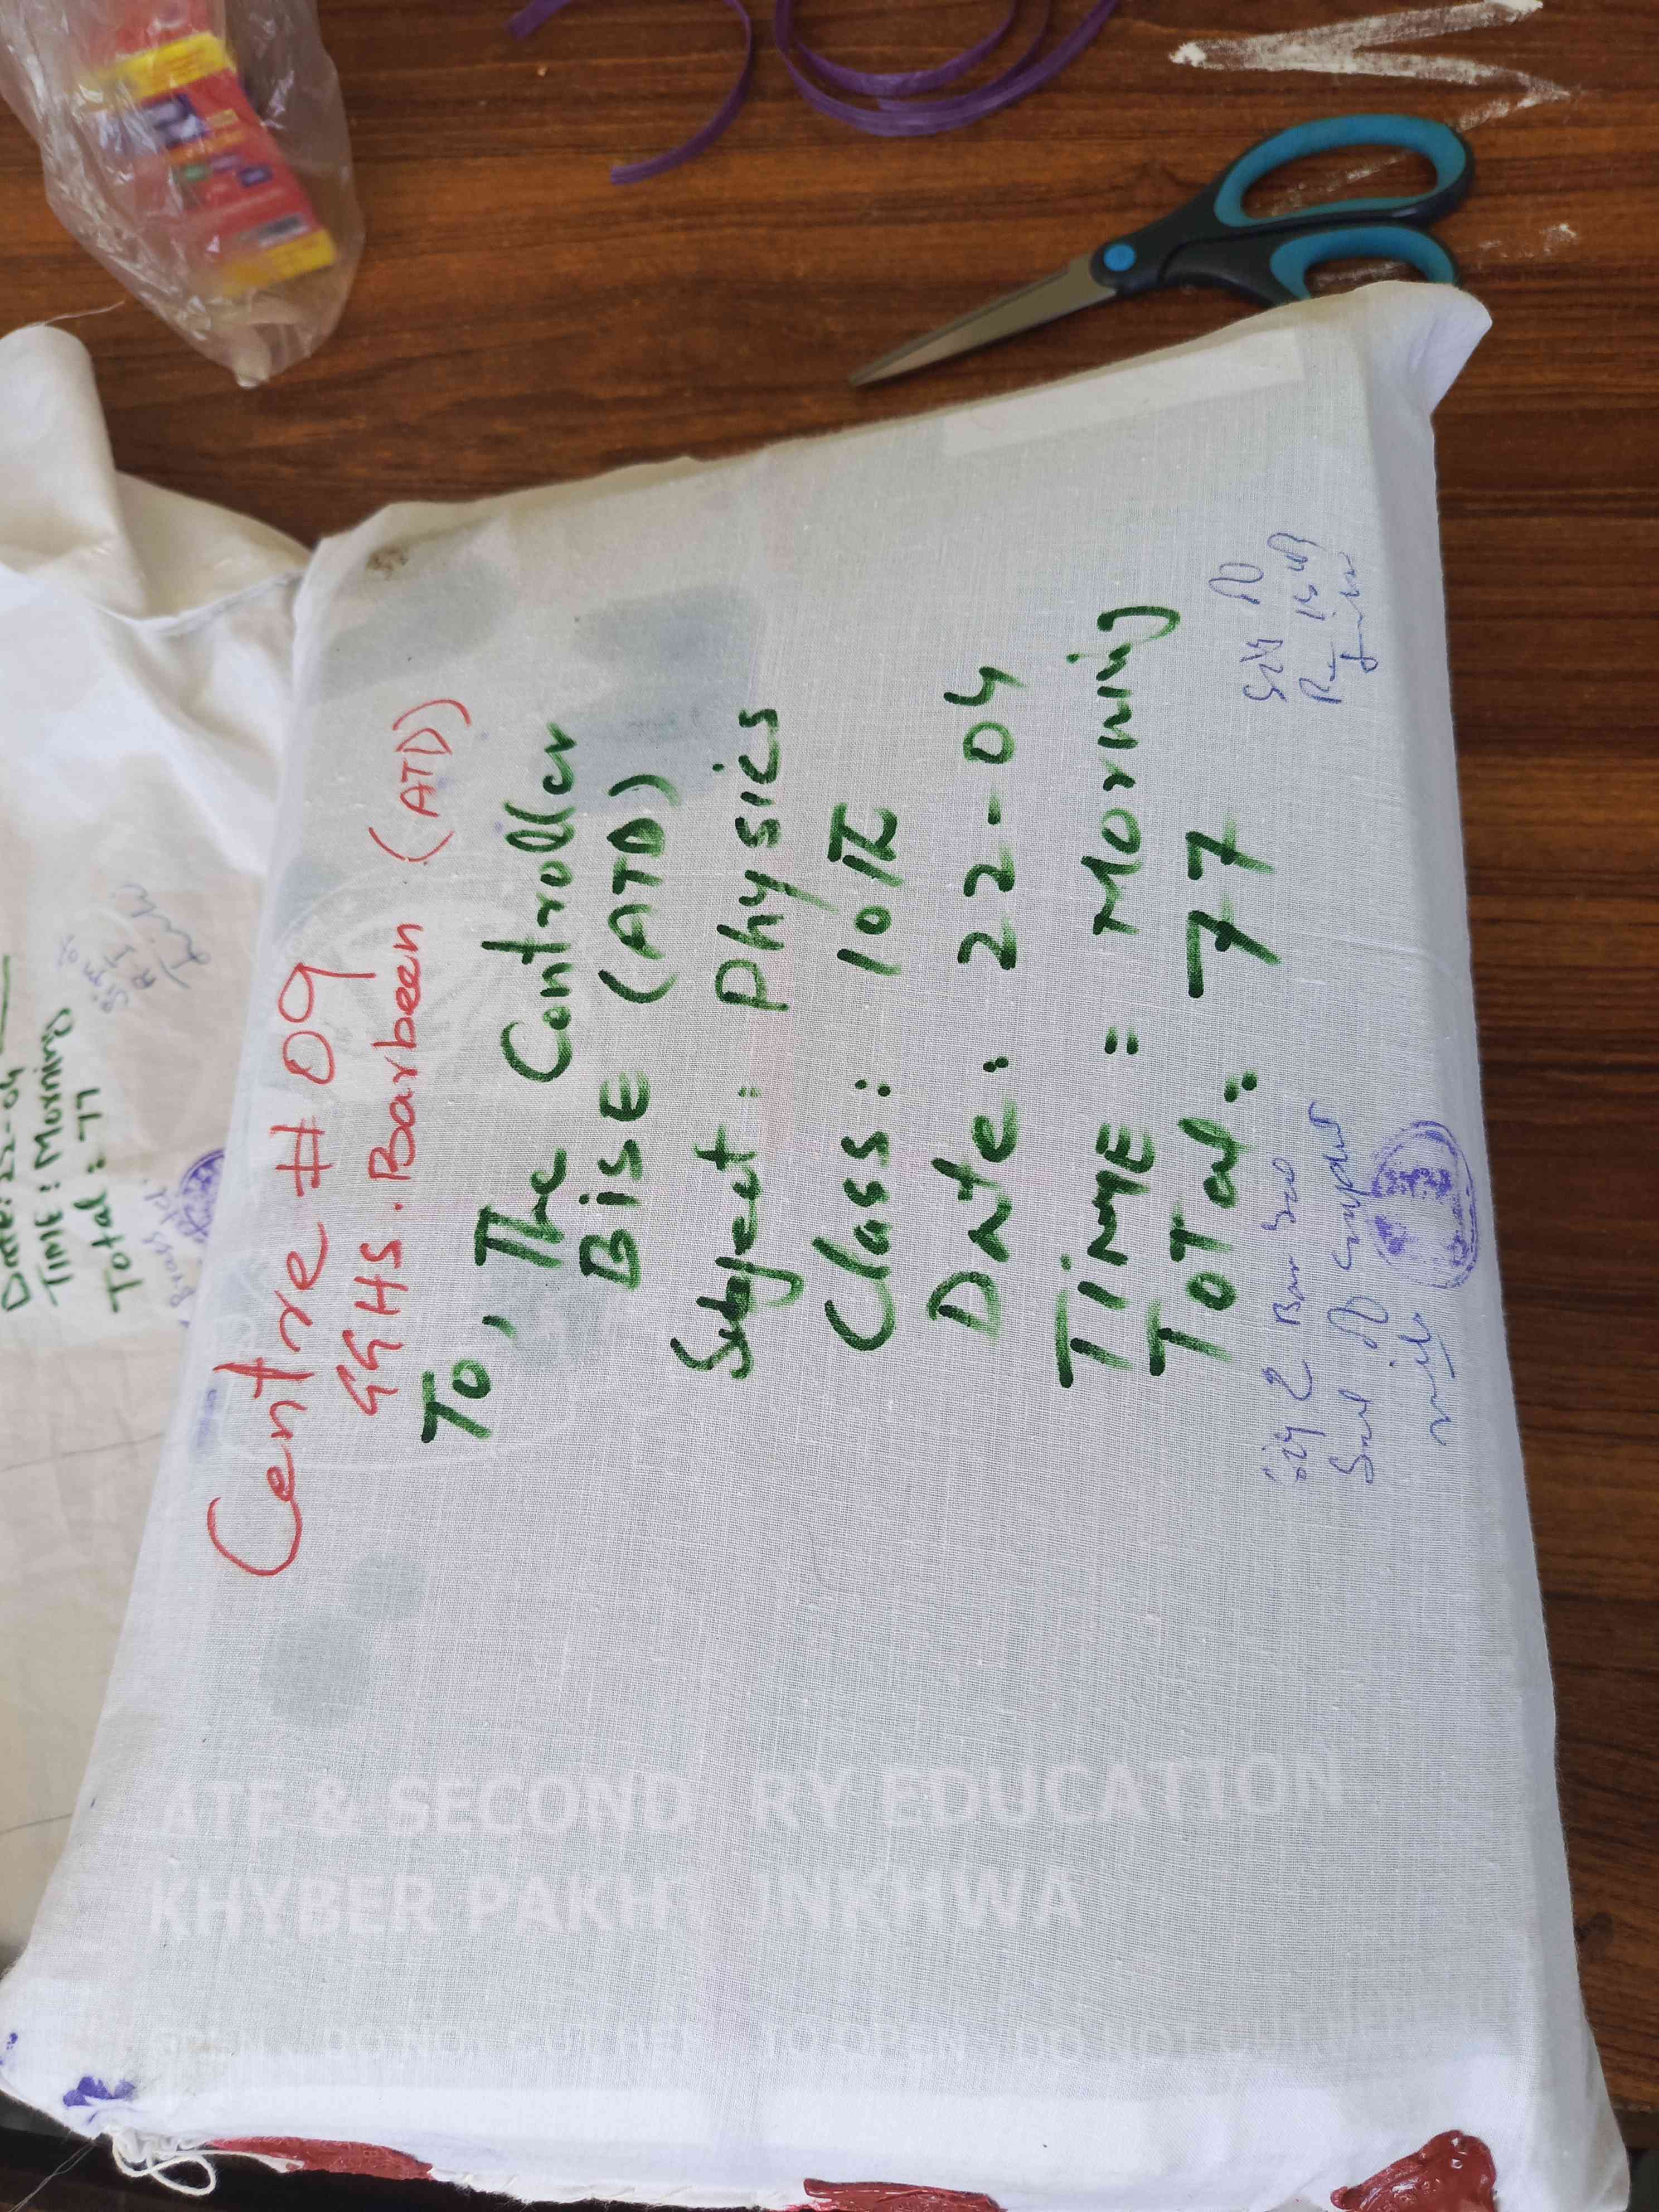 Centre # 09
GGHS. Barbeen (ATD)
To, The Controller
BISE (ATD)
Subject: Physics
Class: 10th
Date: 22-04
TIME: Morning
Total: 77
ATE & SECOND RY EDUCATION
KHYBER PAKH INKHWA
TO OPEN DO NOT CUT
22-04
TIME: Morning
Total: 77
Sign of